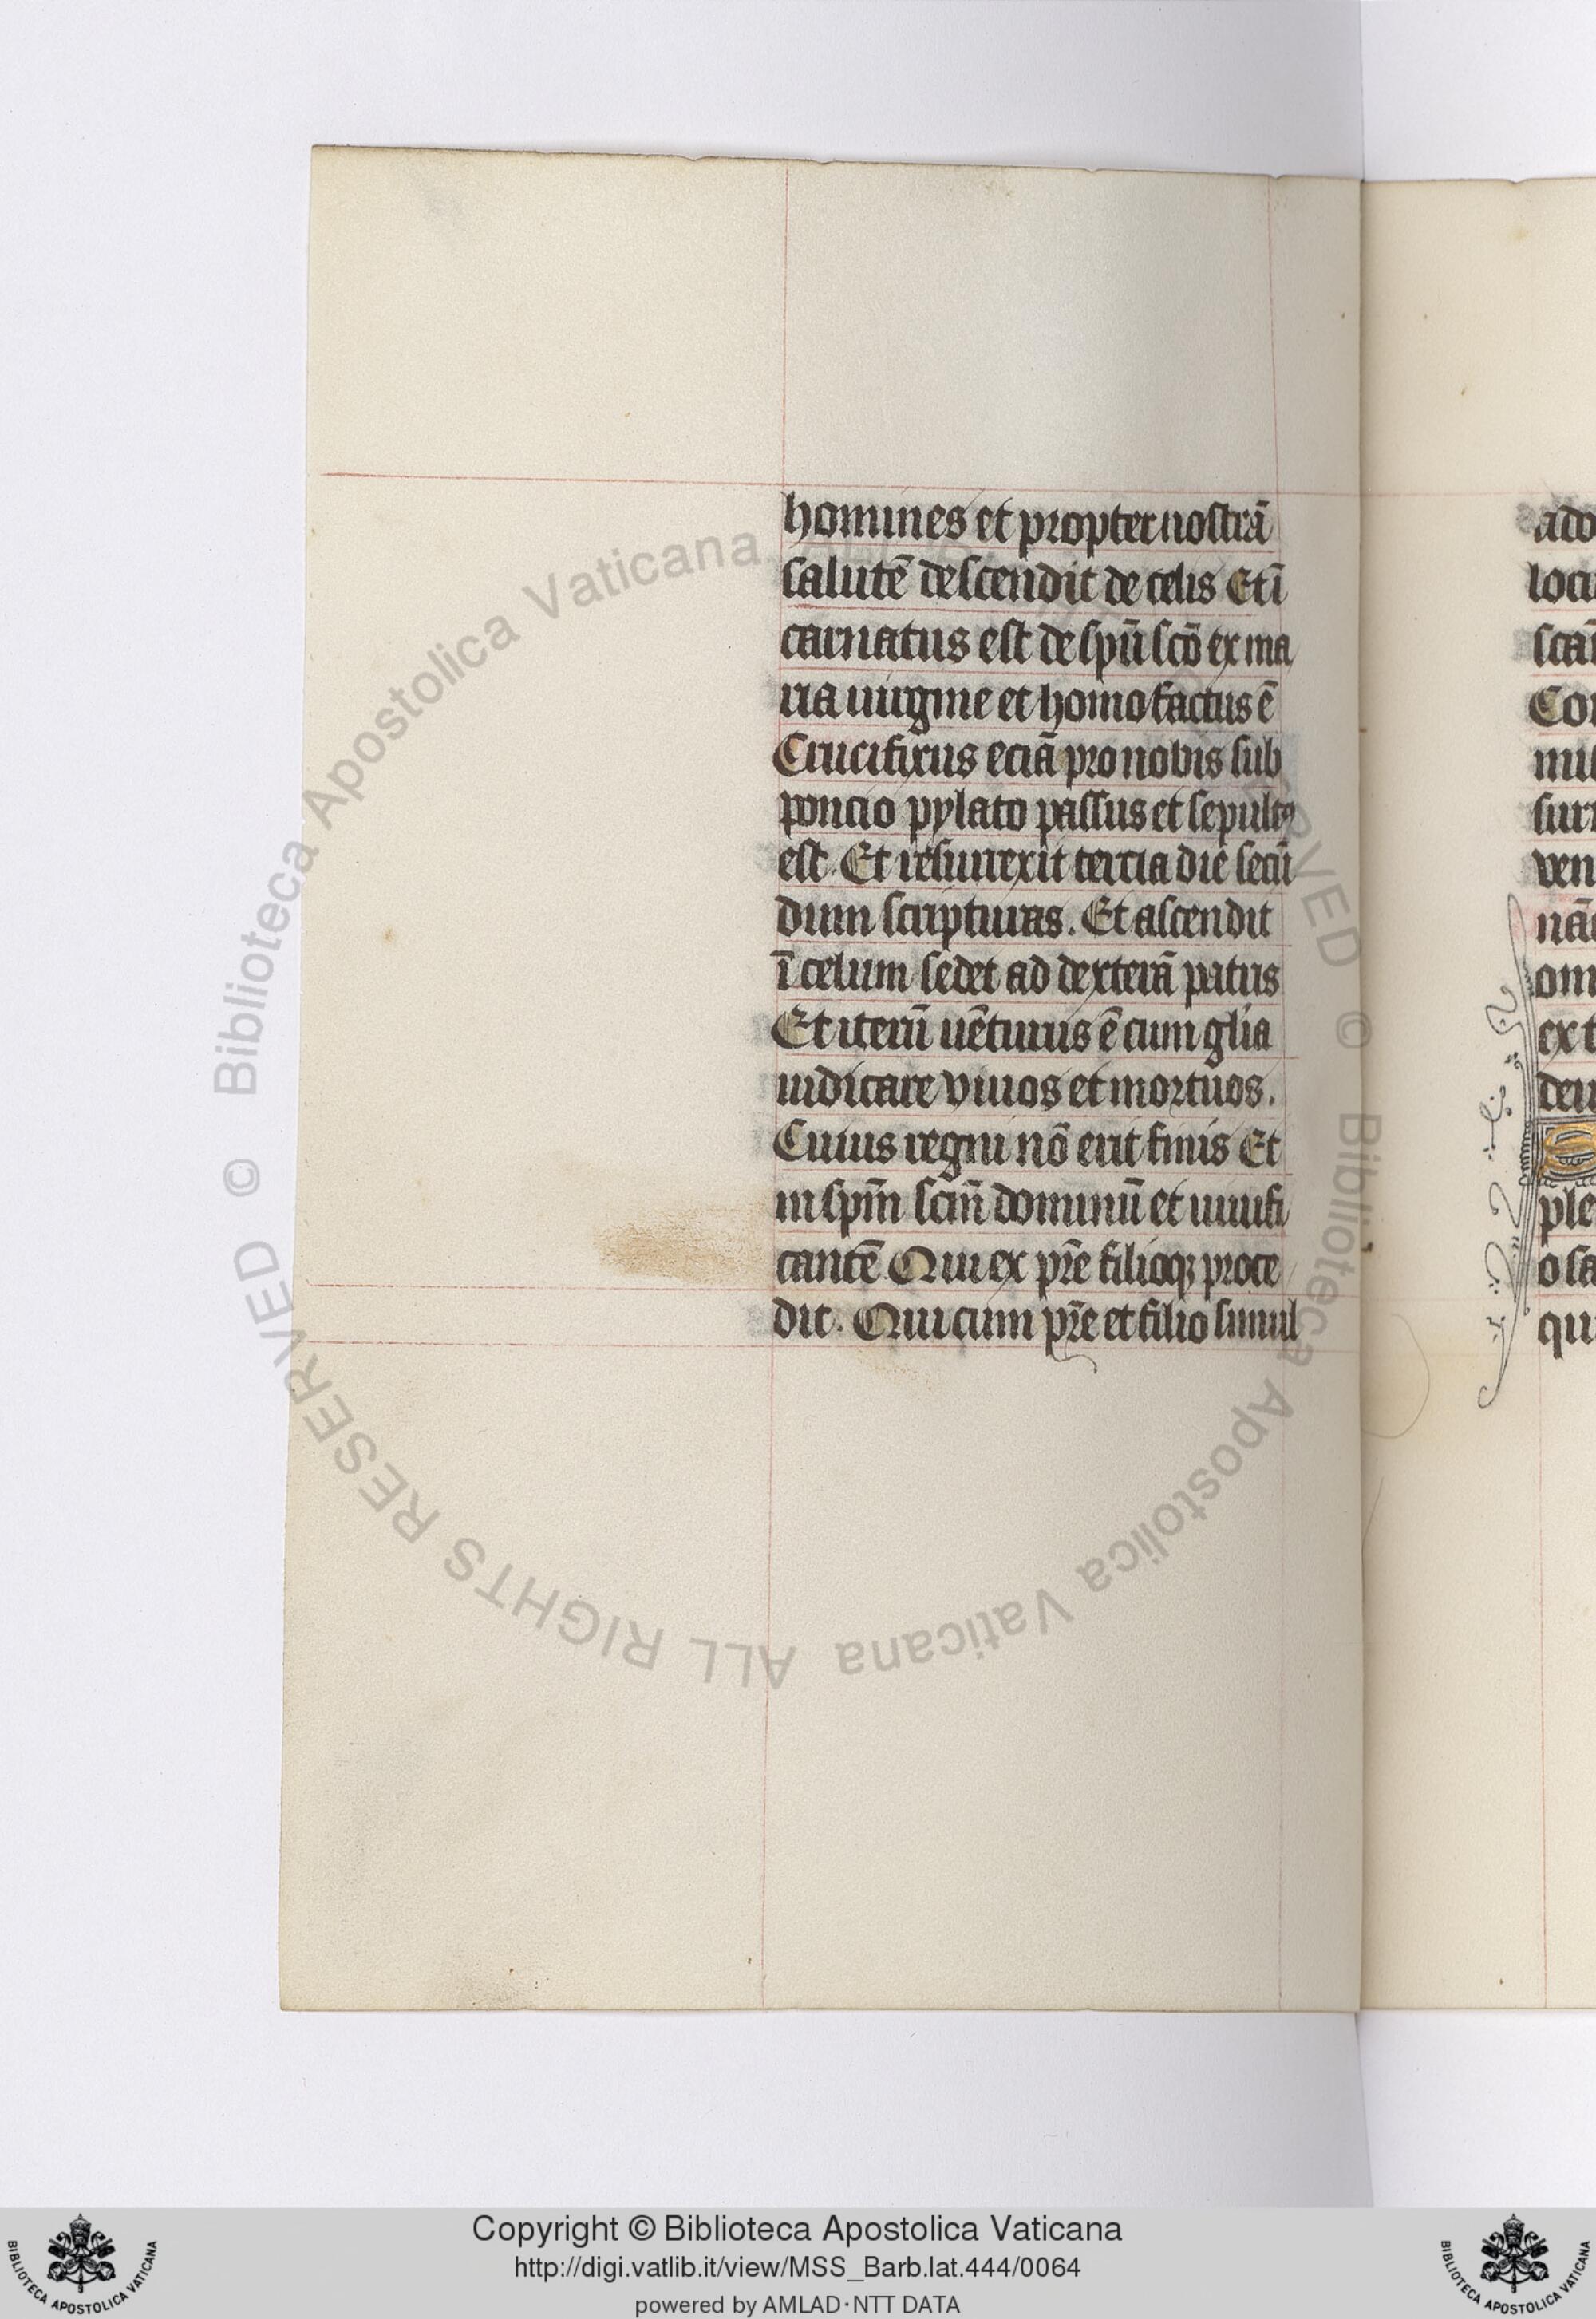 homines et propter nostrā
salutē descendit de celis Et ī
carnatus est de spū scō ex ma
ria uirgine et homo factus ē
Crucifixus eciā pro nobis sub
poncio pylato passus et sepultꝰ
est. Et resurrexit tercia die secū
dum scripturas. Et ascendit
ī celum sedet ad dexterā patris
Et iterū uēturus ē cum glīa
iudicare viuos et mortuos.
Cuius regni nō erit finis Et
in spm̄ scm̄ dominū et uiuifi
cantē Qui ex pr̄e filioqꝫ proce
dit. Qui cum pr̄e et filio simul
ado
locu
scā
Con
mis
surr
ven
nā
om
ex t
deu
O
ple
o sa
qui
© Biblioteca Apostolica Vaticana
ALL RIGHTS RESERVED
© Biblioteca Apostolica Vaticana
ALL RIGHTS RESERVED
Copyright © Biblioteca Apostolica Vaticana
http://digi.vatlib.it/view/MSS_Barb.lat.444/0064
powered by AMLAD·NTT DATA
BIBLIOTECA APOSTOLICA VATICANA
BIBLIOTECA APOSTOLICA VATICANA